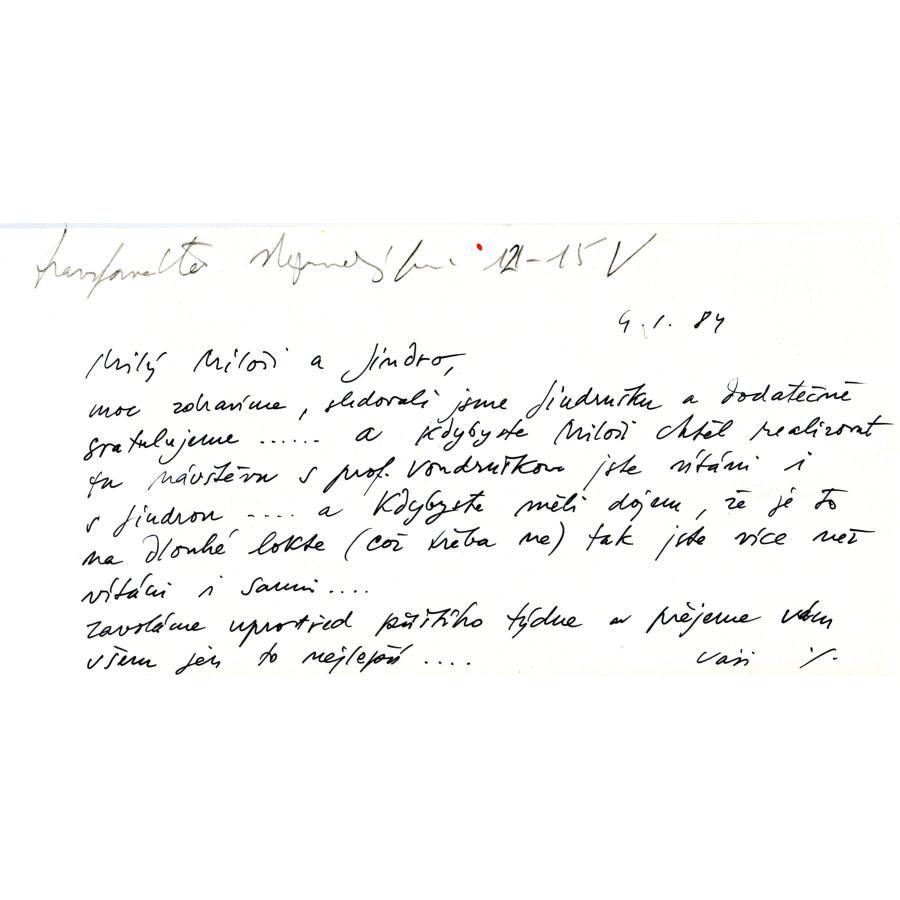 12-15 V
4. 1. 84
Milý Miloši a Jindro,
moc zdravíme, sledovali jsme Jindrušku a dodatečně
gratulujeme ...... a kdybyste Miloši chtěl realizovat
tu návštěvu s prof. Vondruškou jste vítáni i
s Jindrou .... a kdybyste měli dojem, že je to
na dlouhé lokte (což třeba ne) tak jste více než
vítáni i sami....
zavoláme uprostřed příštího týdne a přejeme vám
všem jen to nejlepší ....
Vaši